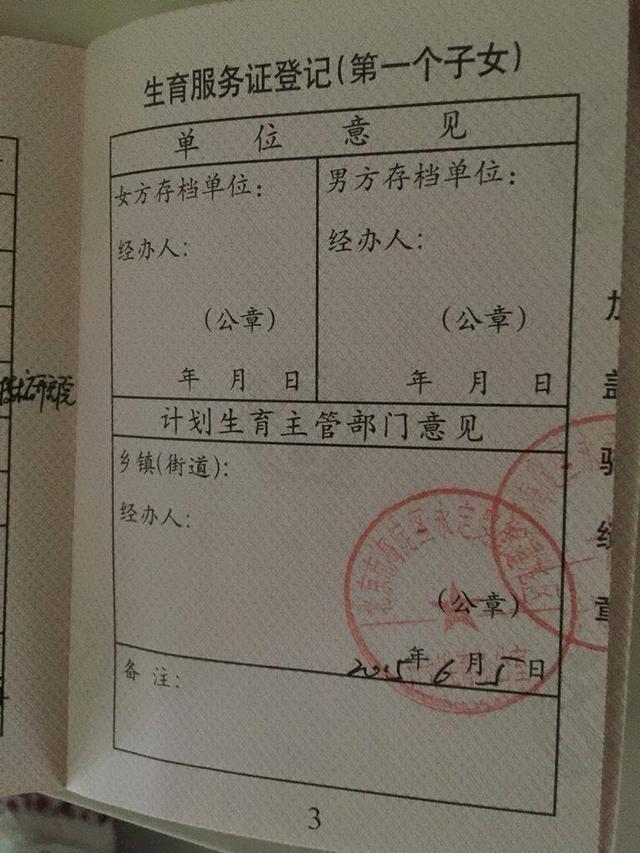 生育服务证登记(第一个子女)
单位意见
女方存档单位:
经办人:
(公章)
年 月 日
男方存档单位:
经办人:
(公章)
年 月 日
计划生育主管部门意见
乡镇(街道):
经办人:
北京市海淀区永定路
(公章)
2015年6月5日
备注:
加盖骑缝章
3